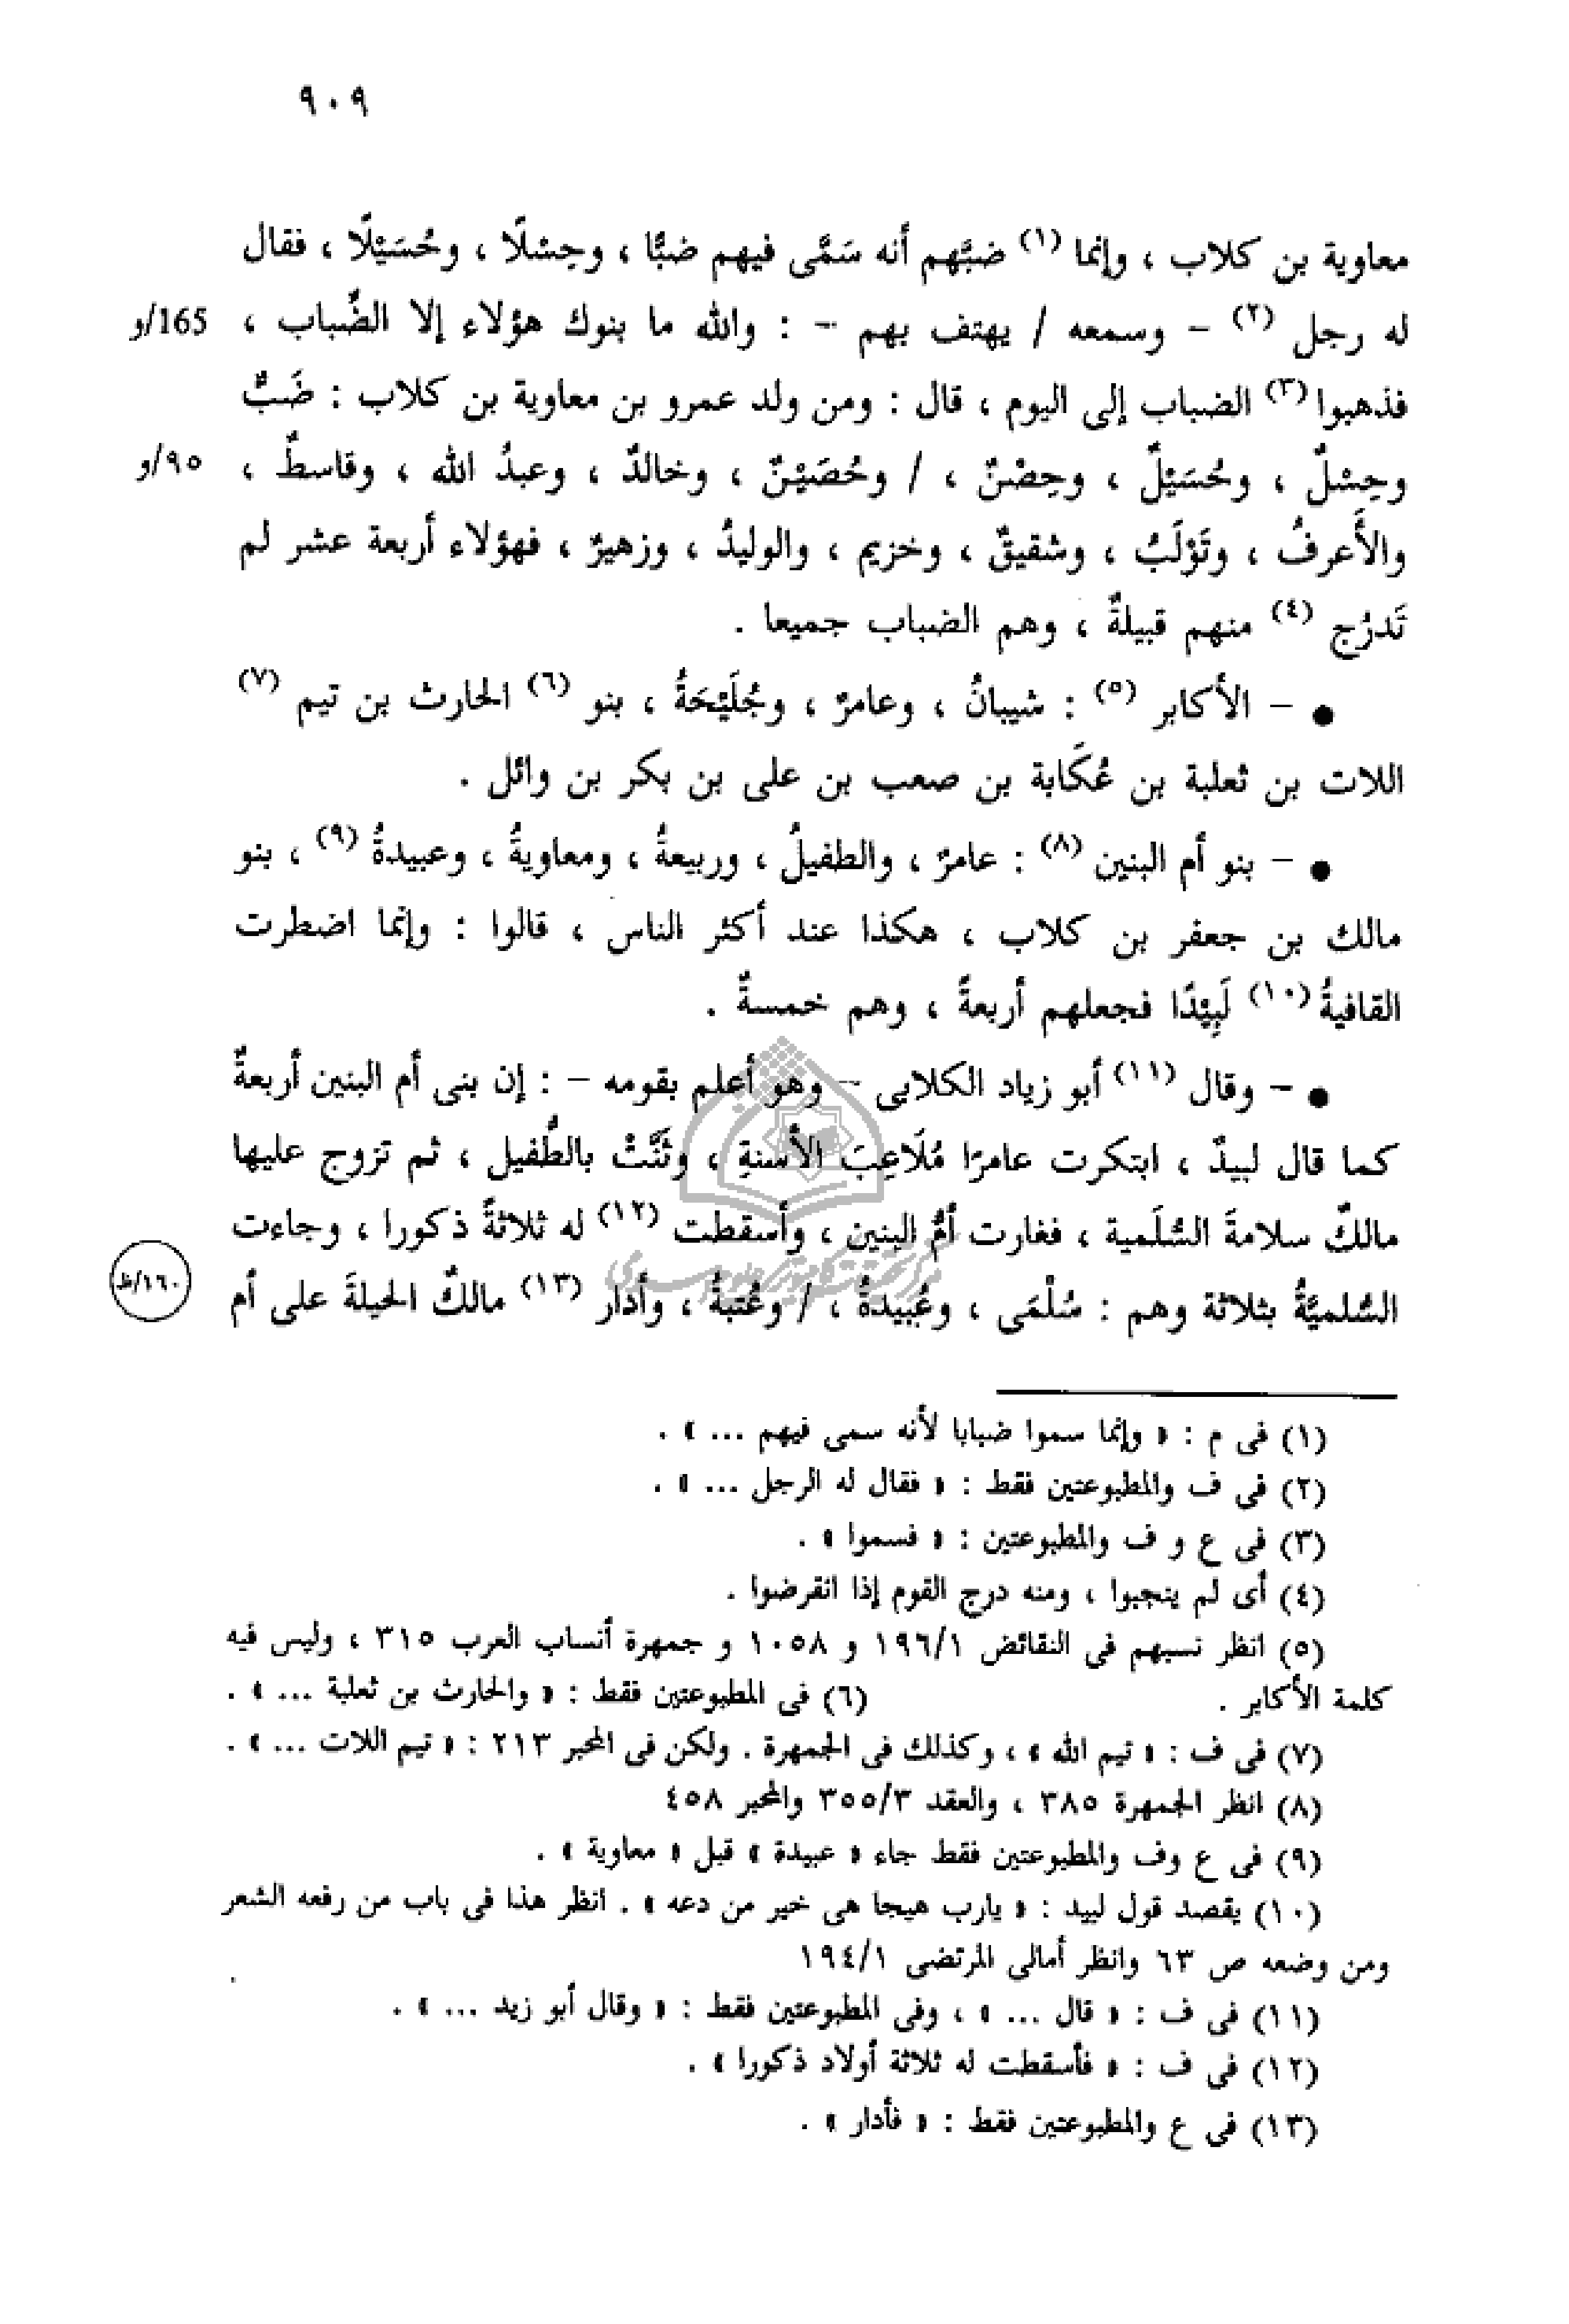 ٩٠٩
معاوية بن كلاب ، وإنما (١) ضبَّهم أنه سَمَّى فيهم ضبًّا ، وحِسْلًا ، وحُسَيْلًا ، فقال
له رجل (٢) – وسمعه / يهتف بهم – : والله ما بنوك هؤلاء إلا الضِّباب ، 165/و
فذهبوا (٣) الضباب إلى اليوم ، قال : ومن ولد عمرو بن معاوية بن كلاب : ضَبٌّ
وحِسْلٌ ، وحُسَيْلٌ ، وحِصْنٌ ، / وحُصَيْنٌ ، وخالدٌ ، وعبدُ الله ، وقاسطٌ ، ٩٥/و
والأَعرفُ ، وتَوْلَبُ ، وشقيقٌ ، وخزيم ، والوليدُ ، وزهيرٌ ، فهؤلاء أربعة عشر لم
تَدرُج (٤) منهم قبيلةٌ ، وهم الضباب جميعا .
● – الأكابر (٥) : شيبانُ ، وعامرٌ ، وجُلَيْحَةُ ، بنو (٦) الحارث بن تيم (٧)
اللات بن ثعلبة بن عُكَابة بن صعب بن على بن بكر بن وائل .
● – بنو أم البنين (٨) : عامرٌ ، والطفيلُ ، وربيعةُ ، ومعاويةُ ، وعبيدةُ (٩) ، بنو
مالك بن جعفر بن كلاب ، هكذا عند أكثر الناس ، قالوا : وإنما اضطرت
القافيةُ (١٠) لَبِيْدًا فجعلهم أربعةً ، وهم خمسةٌ .
● – وقال (١١) أبو زياد الكلابى – وهو أعلم بقومه – : إن بنى أم البنين أربعةٌ
كما قال لبيدٌ ، ابتكرت عامرًا مُلَاعِبَ الأسنةِ ، وثَنَّتْ بالطُّفيل ، ثم تزوج عليها
مالكٌ سلامةَ السُّلَمية ، فغارت أمُّ البنين ، وأسقطت (١٢) له ثلاثةً ذكورا ، وجاءت
السُّلميَّةُ بثلاثة وهم : سُلْمَى ، وعُبيدةُ ، / وعُتبةُ ، وأدار (١٣) مالكٌ الحيلةَ على أم ١٦٠/ظ
(١) فى م : « وإنما سموا ضبابا لأنه سمى فيهم ... » .
(٢) فى ف والمطبوعتين فقط : « فقال له الرجل ... » .
(٣) فى ع و ف والمطبوعتين : « فسموا » .
(٤) أى لم ينجبوا ، ومنه درج القوم إذا انقرضوا .
(٥) انظر نسبهم فى النقائض ١٩٦/١ و ١٠٥٨ و جمهرة أنساب العرب ٣١٥ ، وليس فيه
كلمة الأكابر . (٦) فى المطبوعتين فقط : « والحارث بن ثعلبة ... » .
(٧) فى ف : « تيم الله » ، وكذلك فى الجمهرة . ولكن فى المحبر ٢١٣ : « تيم اللات ... » .
(٨) انظر الجمهرة ٣٨٥ ، والعقد ٣٥٥/٣ والمحبر ٤٥٨
(٩) فى ع وف والمطبوعتين فقط جاء « عبيدة » قبل « معاوية » .
(١٠) يقصد قول لبيد : « يارب هيجا هى خير من دعه » . انظر هذا فى باب من رفعه الشعر
ومن وضعه ص ٦٣ وانظر أمالى المرتضى ١٩٤/١
(١١) فى ف : « قال ... » ، وفى المطبوعتين فقط : « وقال أبو زيد ... » .
(١٢) فى ف : « فأسقطت له ثلاثة أولاد ذكورا » .
(١٣) فى ع والمطبوعتين فقط : « فأدار » .